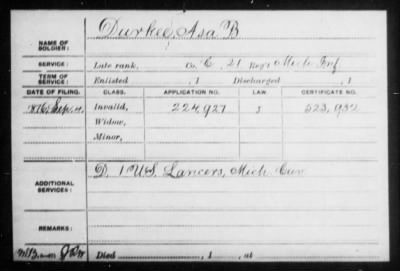 NAME OF SOLDIER: Durkee, Asa B
SERVICE: Late rank, Co. E, 21 Reg't Mich Inf.
TERM OF SERVICE: Enlisted , 1 Discharged , 1
DATE OF FILING. CLASS. APPLICATION NO. LAW. CERTIFICATE NO.
Invalid, 224,927 523,932
Widow,
Minor,
ADDITIONAL SERVICES: D. 1 U.S. Lancers, Mich Cav
REMARKS:
Died , 1 , at